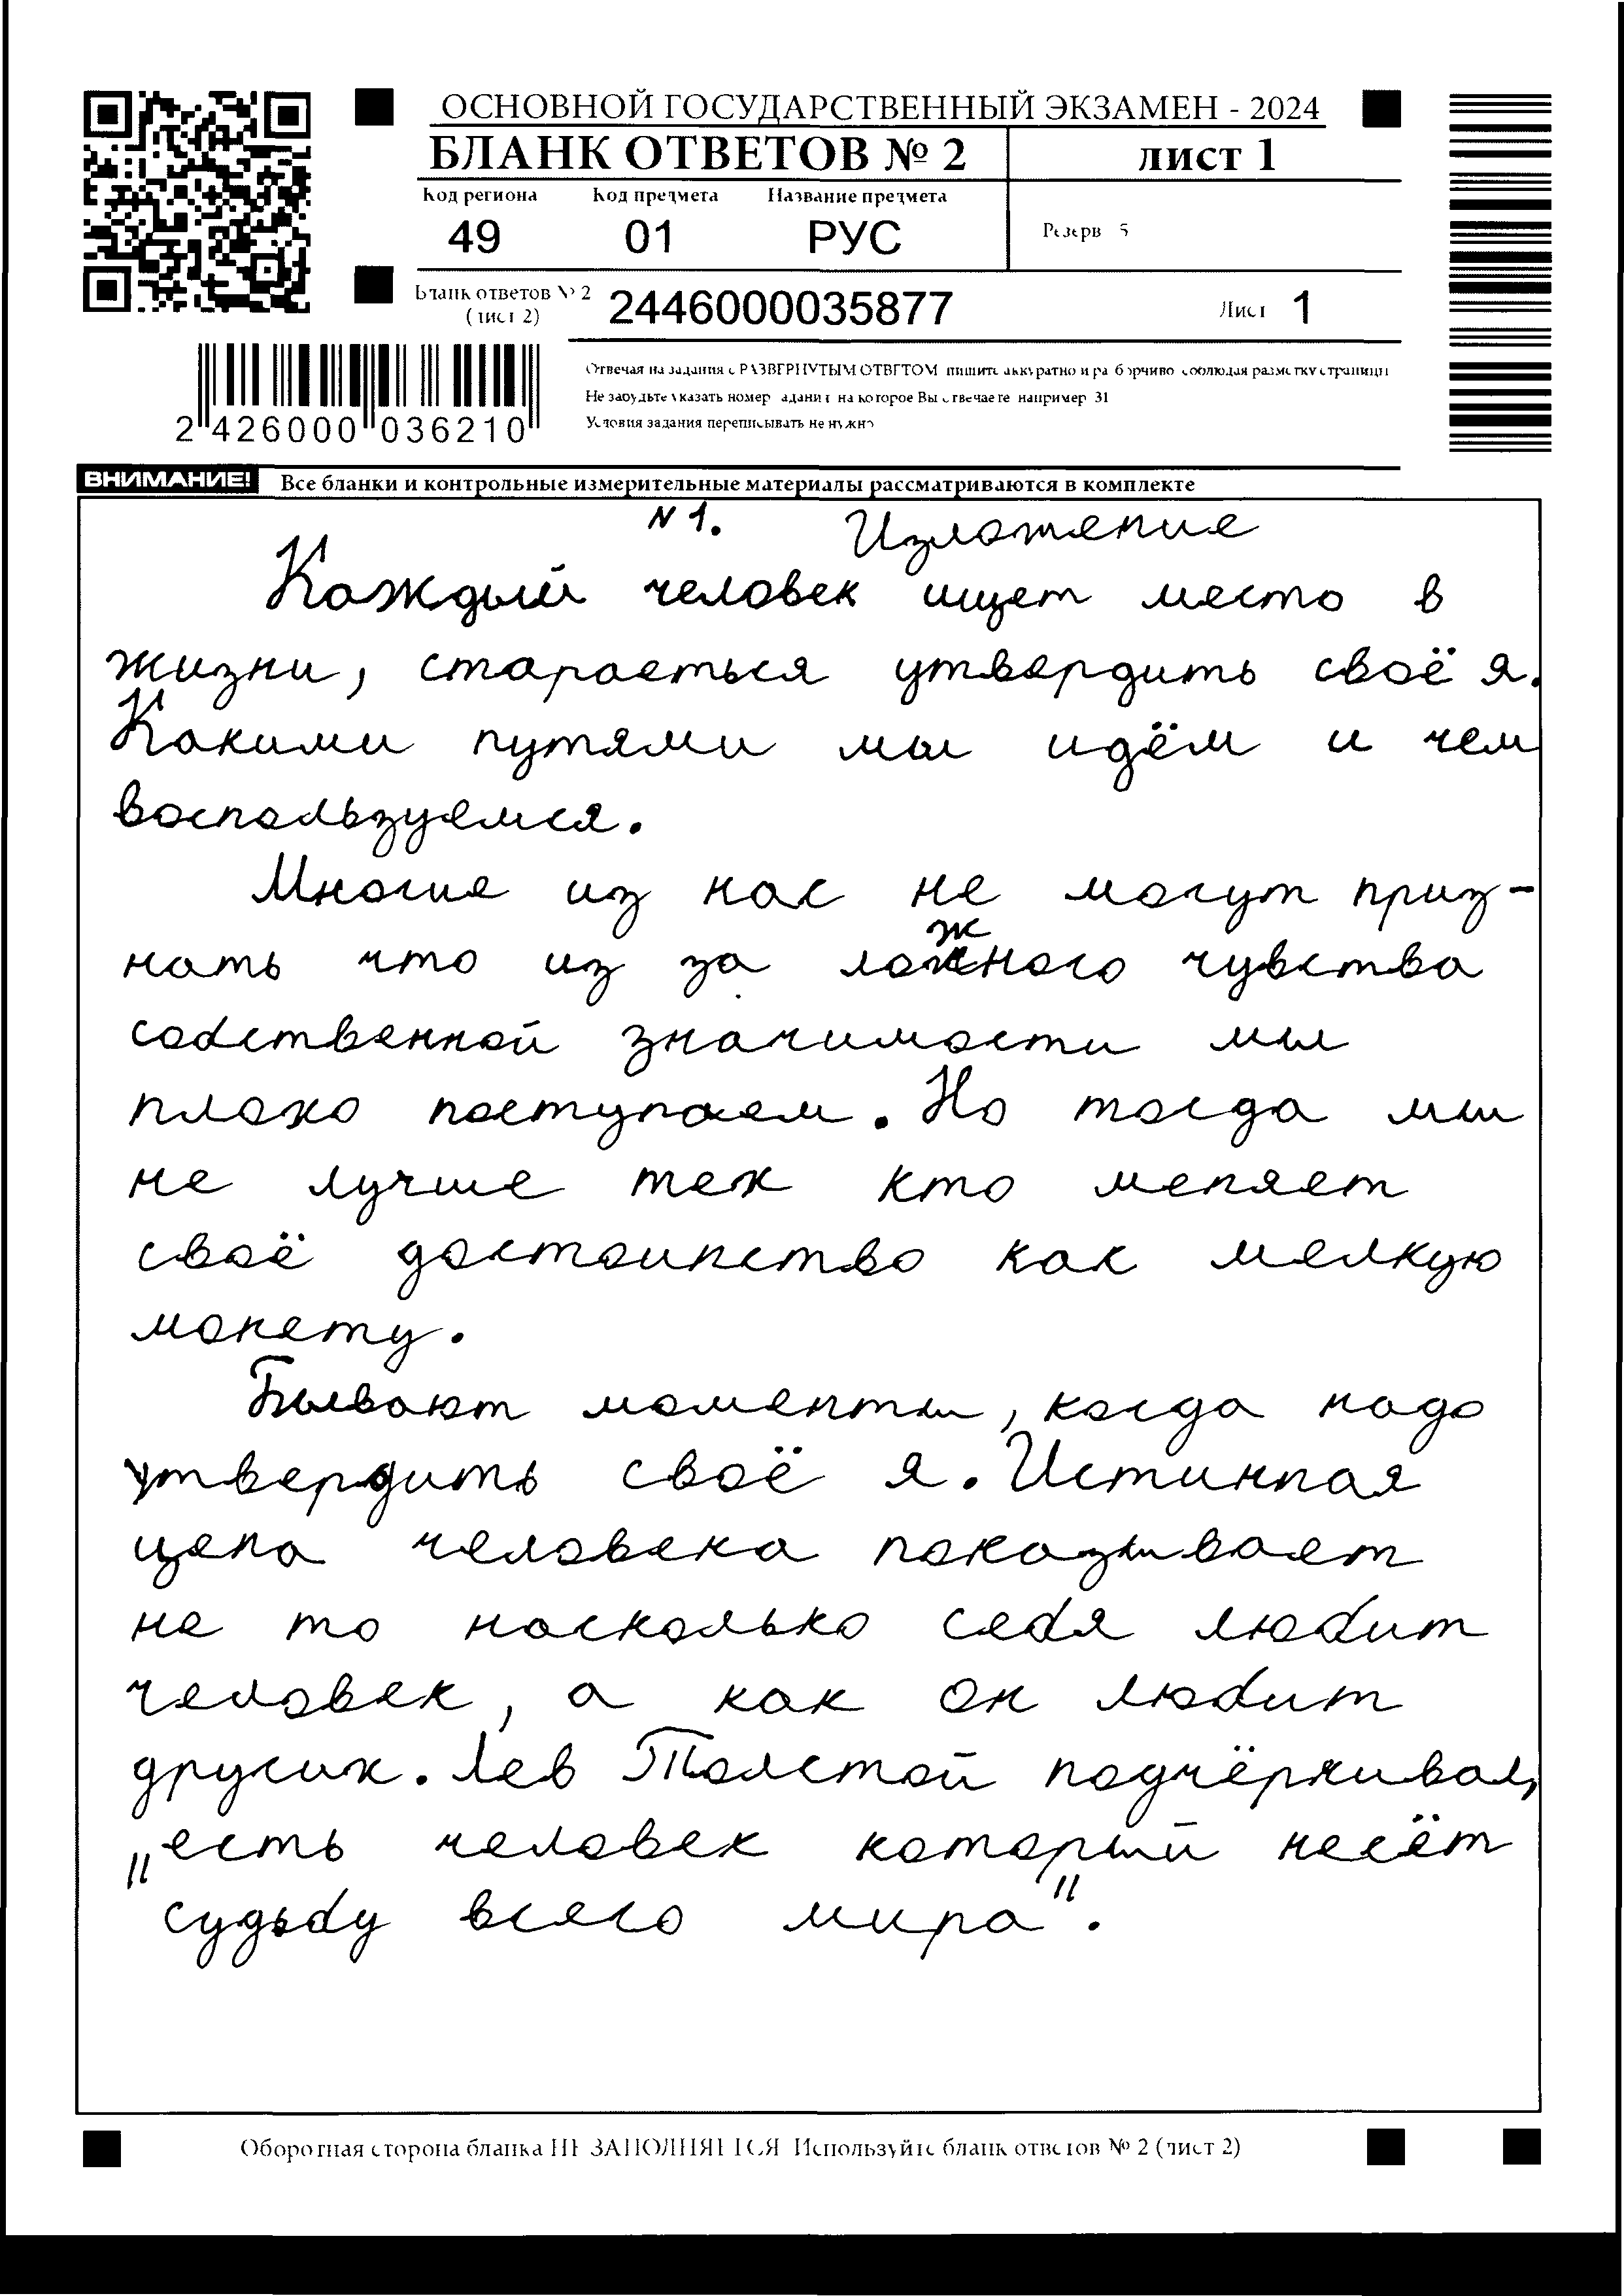 ОСНОВНОЙ ГОСУДАРСТВЕННЫЙ ЭКЗАМЕН - 2024
БЛАНК ОТВЕТОВ № 2
ЛИСТ 1
Код региона Код предмета Название предмета
49 01 РУС
Резерв 5
Бланк ответов № 2
(лист 2)
2446000035877
Лист 1
2 426000 036210
Отвечая на задания с РАЗВЕРНУТЫМ ОТВЕТОМ пишите аккуратно и разборчиво соблюдая разметку страницы
Не забудьте указать номер задания на которое Вы отвечаете например 31
Условия задания переписывать не нужно
ВНИМАНИЕ! Все бланки и контрольные измерительные материалы рассматриваются в комплекте
N 1. Изложение
Каждый человек ищет место в
жизни, стараеться утвердить своё я.
Какими путями мы идём и чем
воспользуемся.
Многие из нас не могут приз-
нать что из за ложного чувства
собственной значимости мы
плохо поступаем. Но тогда мы
не лучше тех кто меняет
своё достоинство как мелкую
монету.
Бывают моменты, когда надо
утвердить своё я. Истинная
цена человека показывает
не то насколько себя любит
человек, а как он любит
других. Лев Толстой подчёркивал,
„есть человек который несёт
судьбу всего мира".
Оборотная сторона бланка НЕ ЗАПОЛНЯЕТСЯ Используйте бланк ответов № 2 (лист 2)